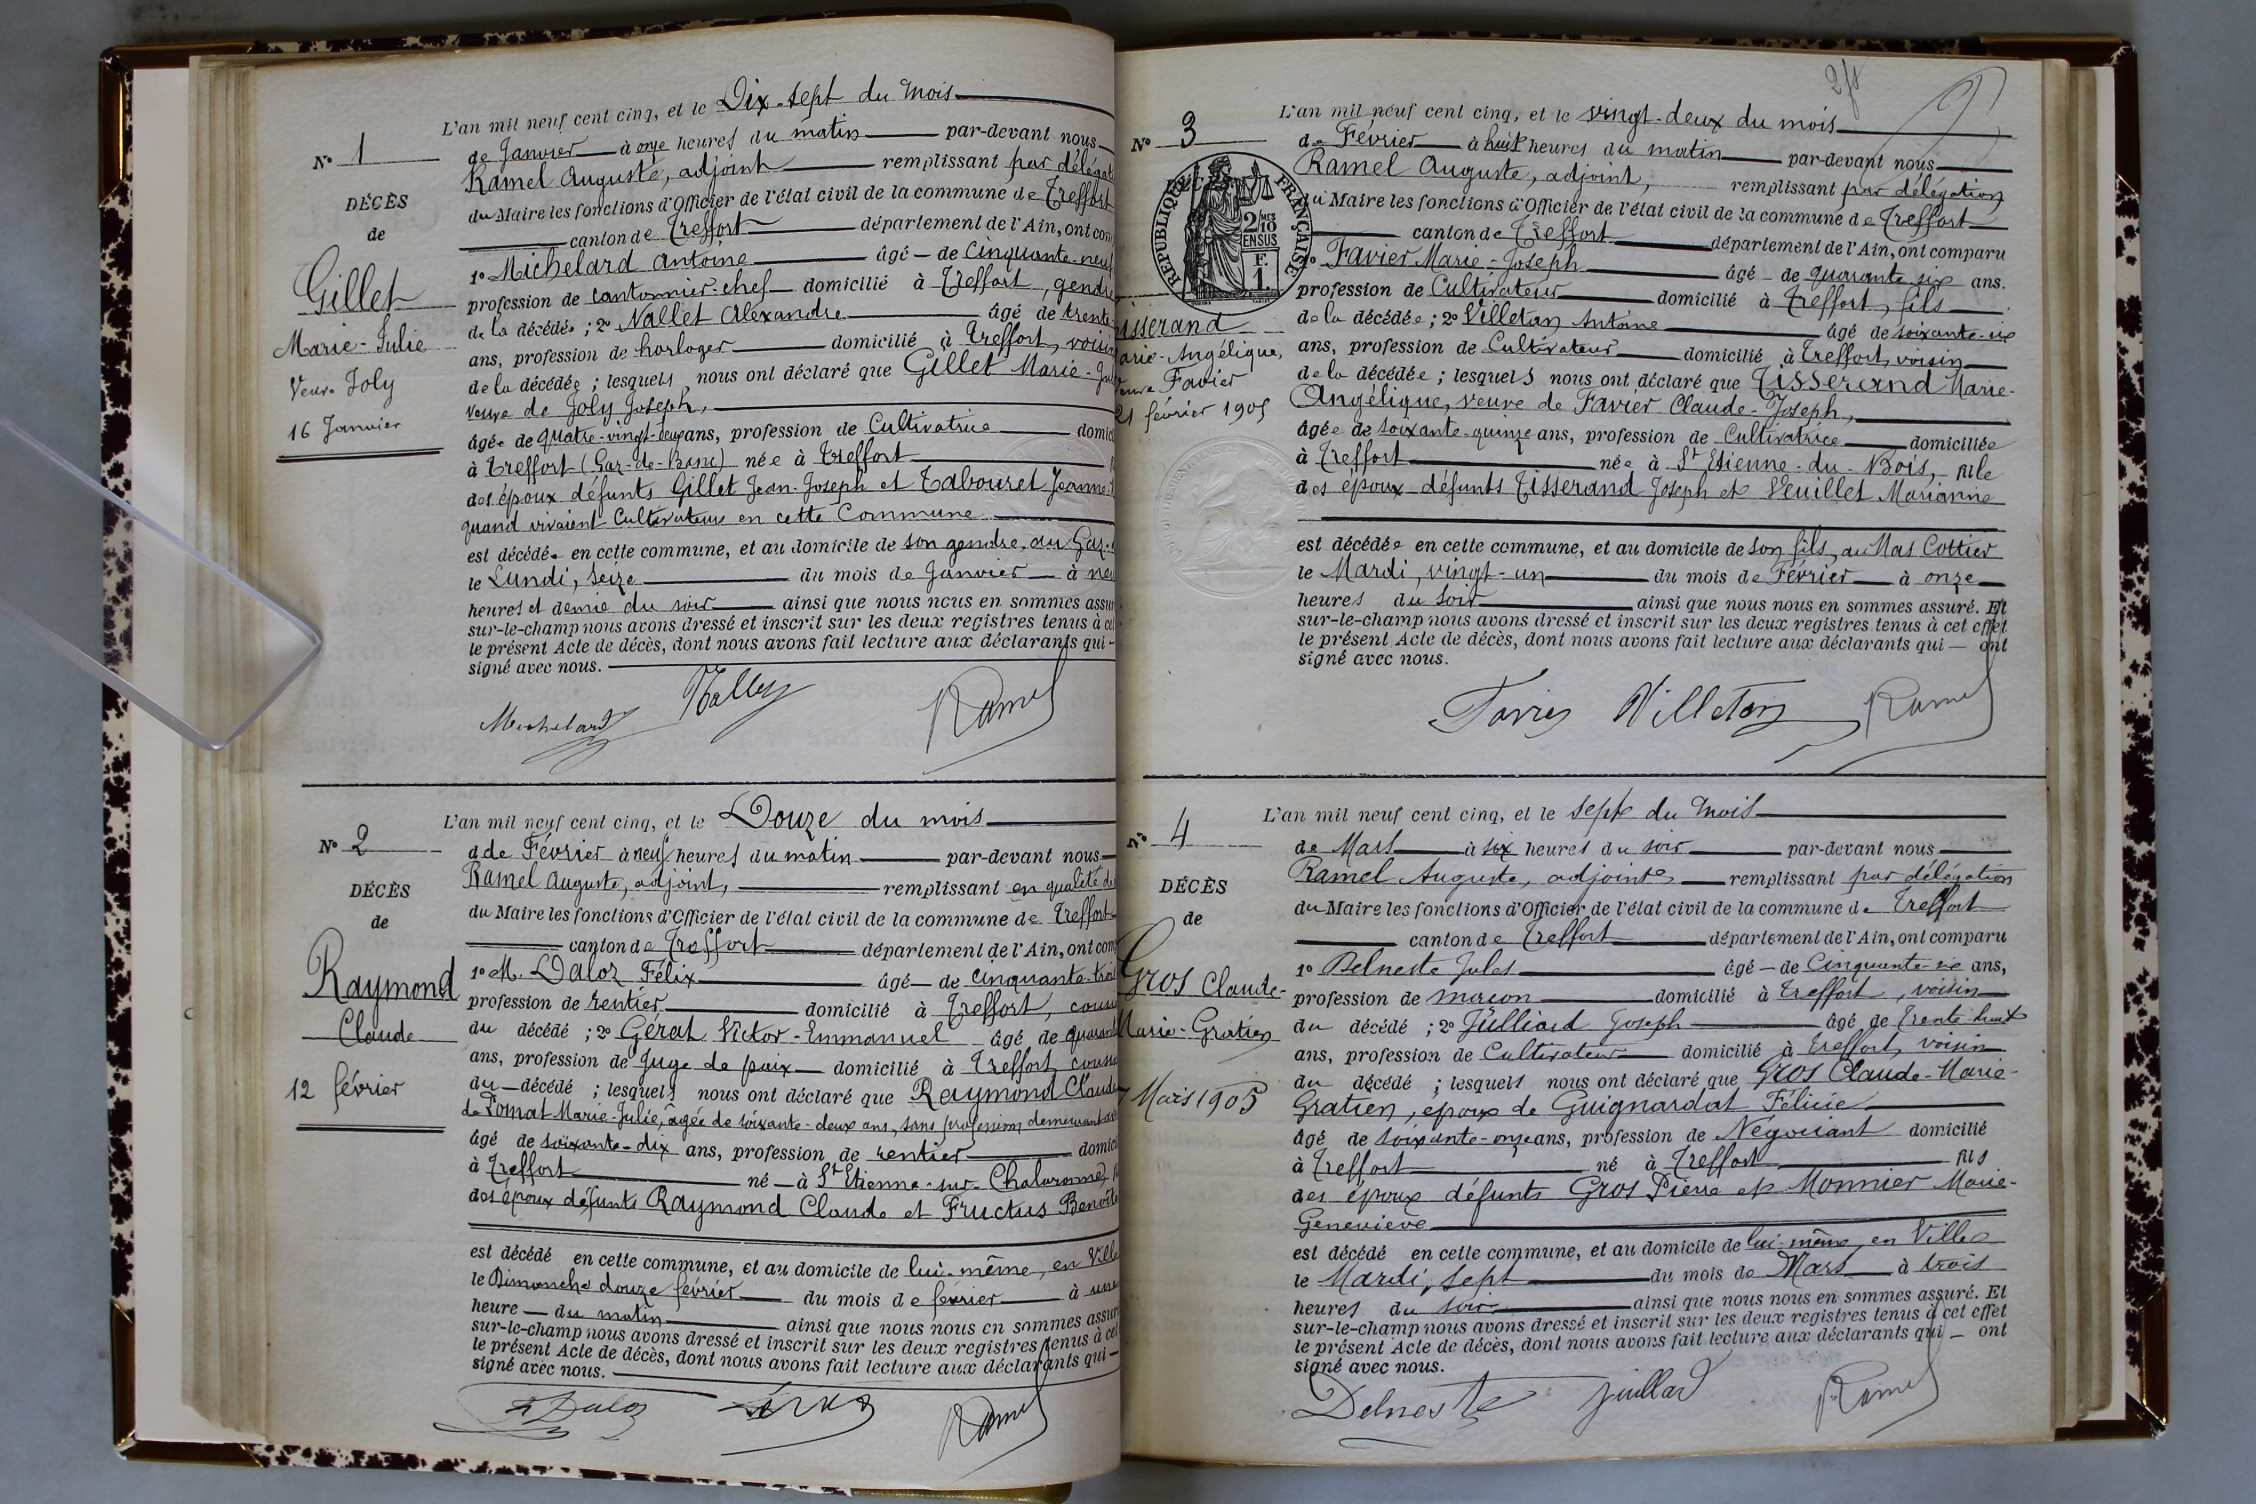 N° 1
DÉCÈS
de
Gillet
Marie-Julie
Veuve Joly
16 Janvier
L'an mil neuf cent cinq, et le Dix-sept du mois
de Janvier à onze heures du matin par-devant nous
Ramel Auguste, adjoint remplissant par
du Maire les fonctions d'Officier de l'état civil de la commune de Treffort
canton de Treffort département de l'Ain, ont
1° Michelard Antoine âgé de Cinquante-neuf
profession de cantonnier-chef domicilié à Treffort, gendre
de la décédée; 2° Nallet Alexandre âgé de trente
ans, profession de horloger domicilié à Treffort, voisin
de la décédée; lesquels nous ont déclaré que Gillet Marie-
veuve de Joly Joseph,
âgée de quatre-vingt-deux ans, profession de Cultivatrice
à Treffort (Gaz-de-Banc) née à Treffort
des époux défunts Gillet Jean-Joseph et Tabouret Jeanne
quand vivaient Cultivateurs en cette Commune
est décédée en cette commune, et au domicile de son gendre, au Gaz
le Lundi, seize du mois de Janvier à
heures et demie du soir ainsi que nous nous en sommes
sur-le-champ nous avons dressé et inscrit sur les deux registres tenus à
le présent Acte de décès, dont nous avons fait lecture aux déclarants qui
signé avec nous.
Michelard Ramel
N° 2
DÉCÈS
de
Raymond
Claude
12 février
L'an mil neuf cent cinq, et le Douze du mois
de Février à neuf heures du matin par-devant nous
Ramel Auguste, adjoint, remplissant en qualité de
du Maire les fonctions d'Officier de l'état civil de la commune de Treffort
canton de Treffort département de l'Ain, ont
1° M. Daloz Félix âgé de cinquante-trois
profession de rentier domicilié à Treffort,
du décédé; 2° Gérat Victor-Emmanuel âgé de
ans, profession de Juge de paix domicilié à Treffort,
du décédé; lesquels nous ont déclaré que Raymond Claude
de Pomat Marie-Julie, âgée de soixante-deux ans, sans profession demeurant
âgé de soixante-dix ans, profession de rentier
à Treffort né à St Etienne-sur-Chalaronne,
des époux défunts Raymond Claude et Fructus Benoîte
est décédé en cette commune, et au domicile de lui-même, en Ville
le Dimanche douze février du mois de février à
heure du matin ainsi que nous nous en sommes
sur-le-champ nous avons dressé et inscrit sur les deux registres tenus à
le présent Acte de décès, dont nous avons fait lecture aux déclarants qui
signé avec nous.
Daloz Ramel
N° 3
RÉPUBLIQUE FRANÇAISE
2/10 EN SUS
F. 1.
Marie-Angélique,
Favier
21 février 1905
L'an mil neuf cent cinq, et le vingt-deux du mois
de Février à huit heures du matin par-devant nous
Ramel Auguste, adjoint, remplissant par délégation
du Maire les fonctions d'Officier de l'état civil de la commune de Treffort
canton de Treffort département de l'Ain, ont comparu
1° Favier Marie-Joseph âgé de quarante six ans.
profession de Cultivateur domicilié à Treffort, fils
de la décédée; 2° Villetan Antoine âgé de soixante-six
ans, profession de Cultivateur domicilié à Treffort, voisin
de la décédée; lesquels nous ont déclaré que Tisserand Marie-
Angélique, veuve de Favier Claude-Joseph,
âgée de soixante-quinze ans, profession de Cultivatrice domiciliée
à Treffort née à St Etienne-du-Bois, fille
des époux défunts Tisserand Joseph et Veuillet Marianne
est décédée en cette commune, et au domicile de son fils, au Mas Cottier
le Mardi, vingt-un du mois de Février à onze
heures du soir ainsi que nous nous en sommes assuré. Et
sur-le-champ nous avons dressé et inscrit sur les deux registres tenus à cet effet
le présent Acte de décès, dont nous avons fait lecture aux déclarants qui ont
signé avec nous.
Villetan Ramel
N° 4
DÉCÈS
de
Gros Claude-
Marie-Gratien
7 Mars 1905
L'an mil neuf cent cinq, et le sept du mois
de Mars à six heures du soir par-devant nous
Ramel Auguste, adjoint remplissant par délégation
du Maire les fonctions d'Officier de l'état civil de la commune de Treffort
canton de Treffort département de l'Ain, ont comparu
1° Delneste Jules âgé de Cinquante-six ans,
profession de maçon domicilié à Treffort, voisin
du décédé; 2° Juilliard Joseph âgé de trente-huit
ans, profession de Cultivateur domicilié à Treffort, voisin
du décédé; lesquels nous ont déclaré que Gros Claude-Marie-
Gratien, époux de Guignardat Félicie
âgé de soixante-onze ans, profession de Négociant domicilié
à Treffort né à Treffort fils
des époux défunts Gros Pierre et Monnier Marie-
Geneviève
est décédé en cette commune, et au domicile de lui-même, en Ville
le Mardi, sept du mois de Mars à trois
heures du soir ainsi que nous nous en sommes assuré. Et
sur-le-champ nous avons dressé et inscrit sur les deux registres tenus à cet effet
le présent Acte de décès, dont nous avons fait lecture aux déclarants qui ont
signé avec nous.
Delneste Juillard Ramel